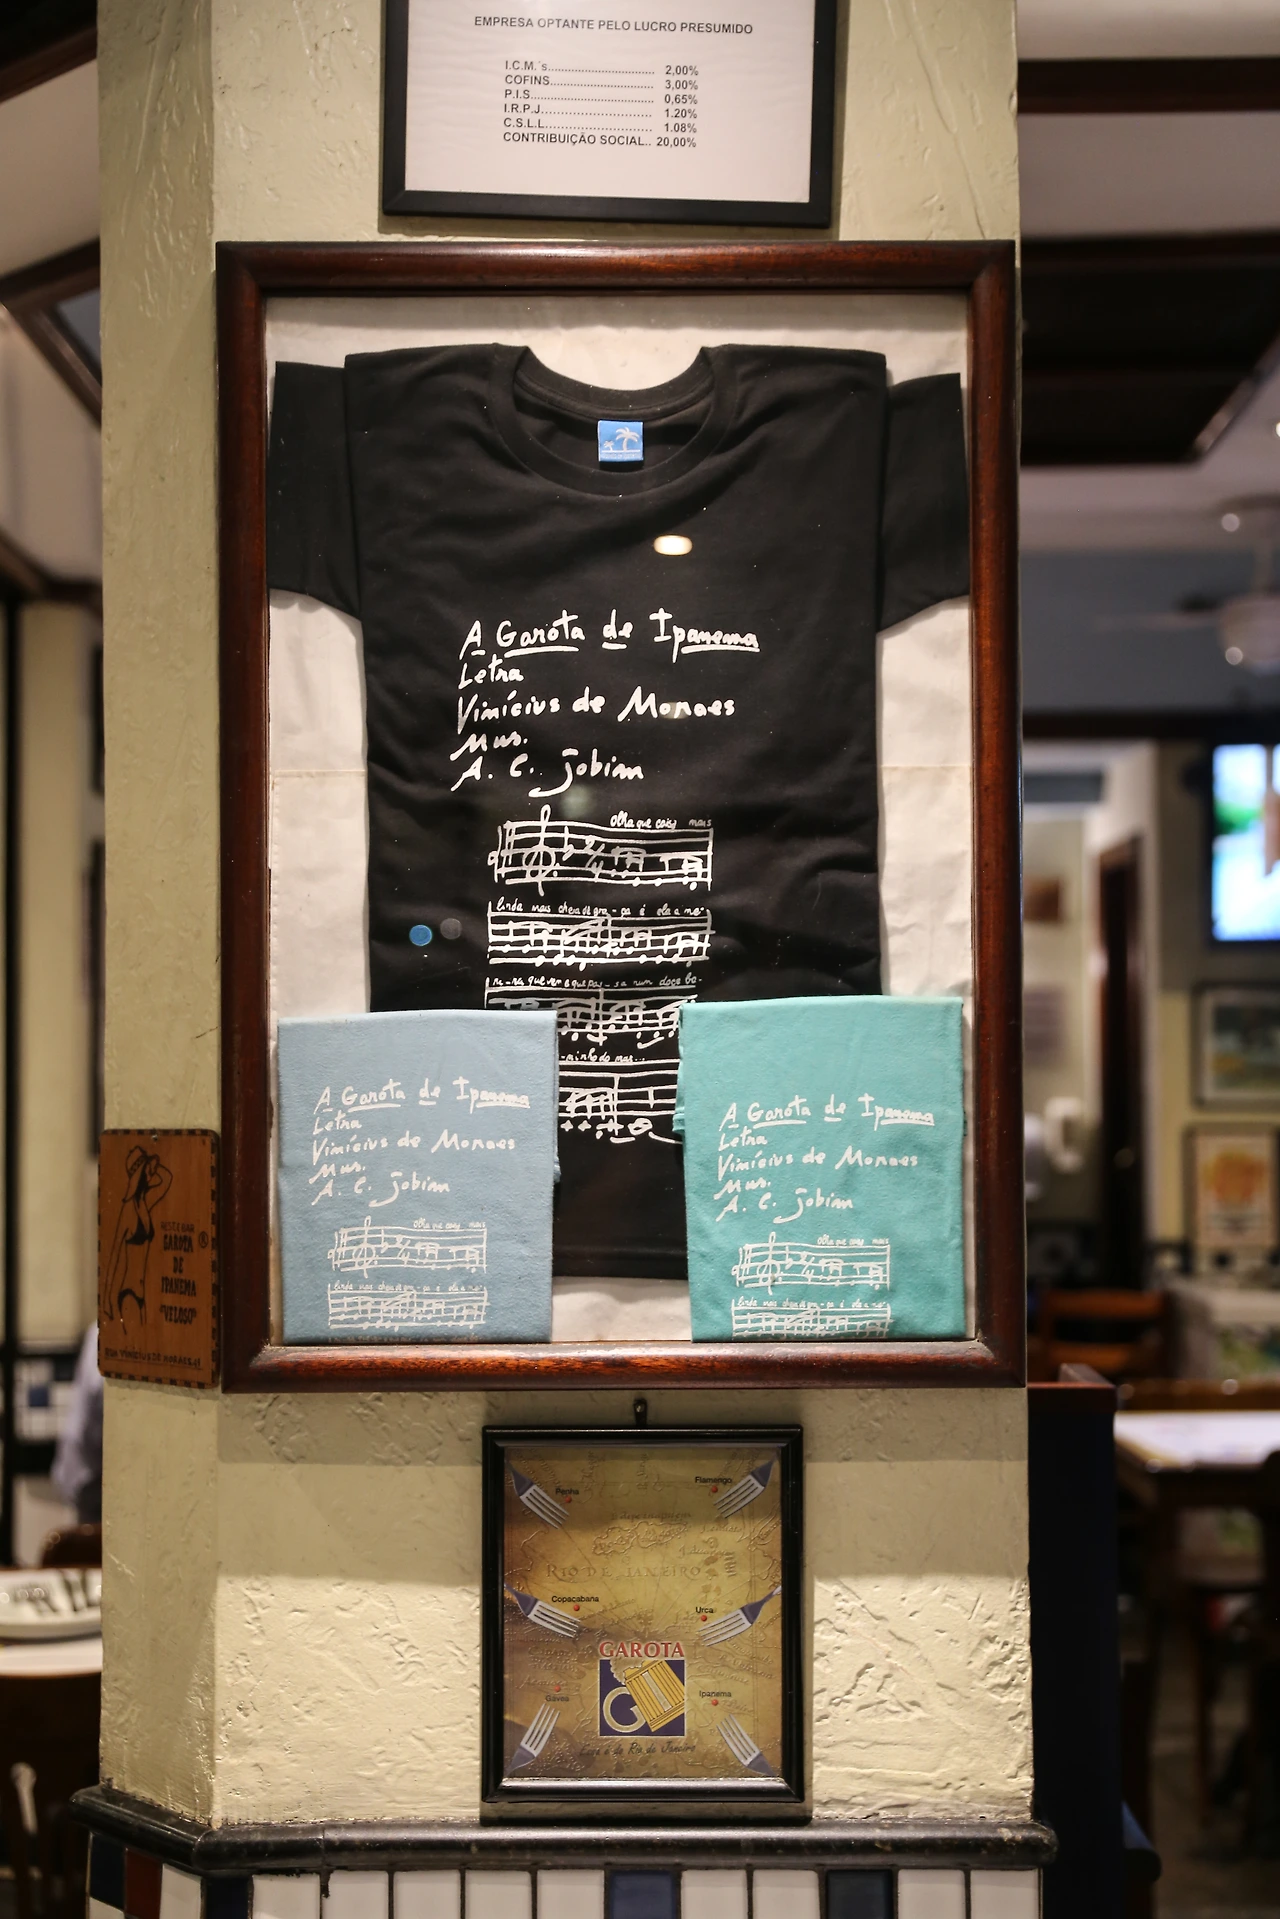 EMPRESA OPTANTE PELO LUCRO PRESUMIDO
I.C.M.´s............................ 2,00%
COFINS............................ 3,00%
P.I.S................................ 0,65%
I.R.P.J............................. 1.20%
C.S.L.L............................ 1.08%
CONTRIBUIÇÃO SOCIAL.. 20,00%
A Garota de Ipanema
Letra
Vinícius de Moraes
Mus.
A. C. Jobim
Olha que coisa mais
linda mais cheia de gra-ça é ela a me-
ni-na que vem e que pas-sa num doce ba-
-minho do mar...
A Garota de Ipanema
Letra
Vinícius de Moraes
Mus.
A. C. Jobim
Olha que coisa mais
linda mais cheia de gra-ça é ela a me-
A Garota de Ipanema
Letra
Vinícius de Moraes
Mus.
A. C. Jobim
Olha que coisa mais
linda mais cheia de gra-ça é ela a me-
RESTEBAR
GAROTA ®
DE
IPANEMA
"VELOSO"
RUA VINÍCIUS DE MORAES, 49
Penha
Flamengo
RIO DE JANEIRO
Copacabana
Urca
GAROTA
G
Gávea
Ipanema
Esse é do Rio de Janeiro